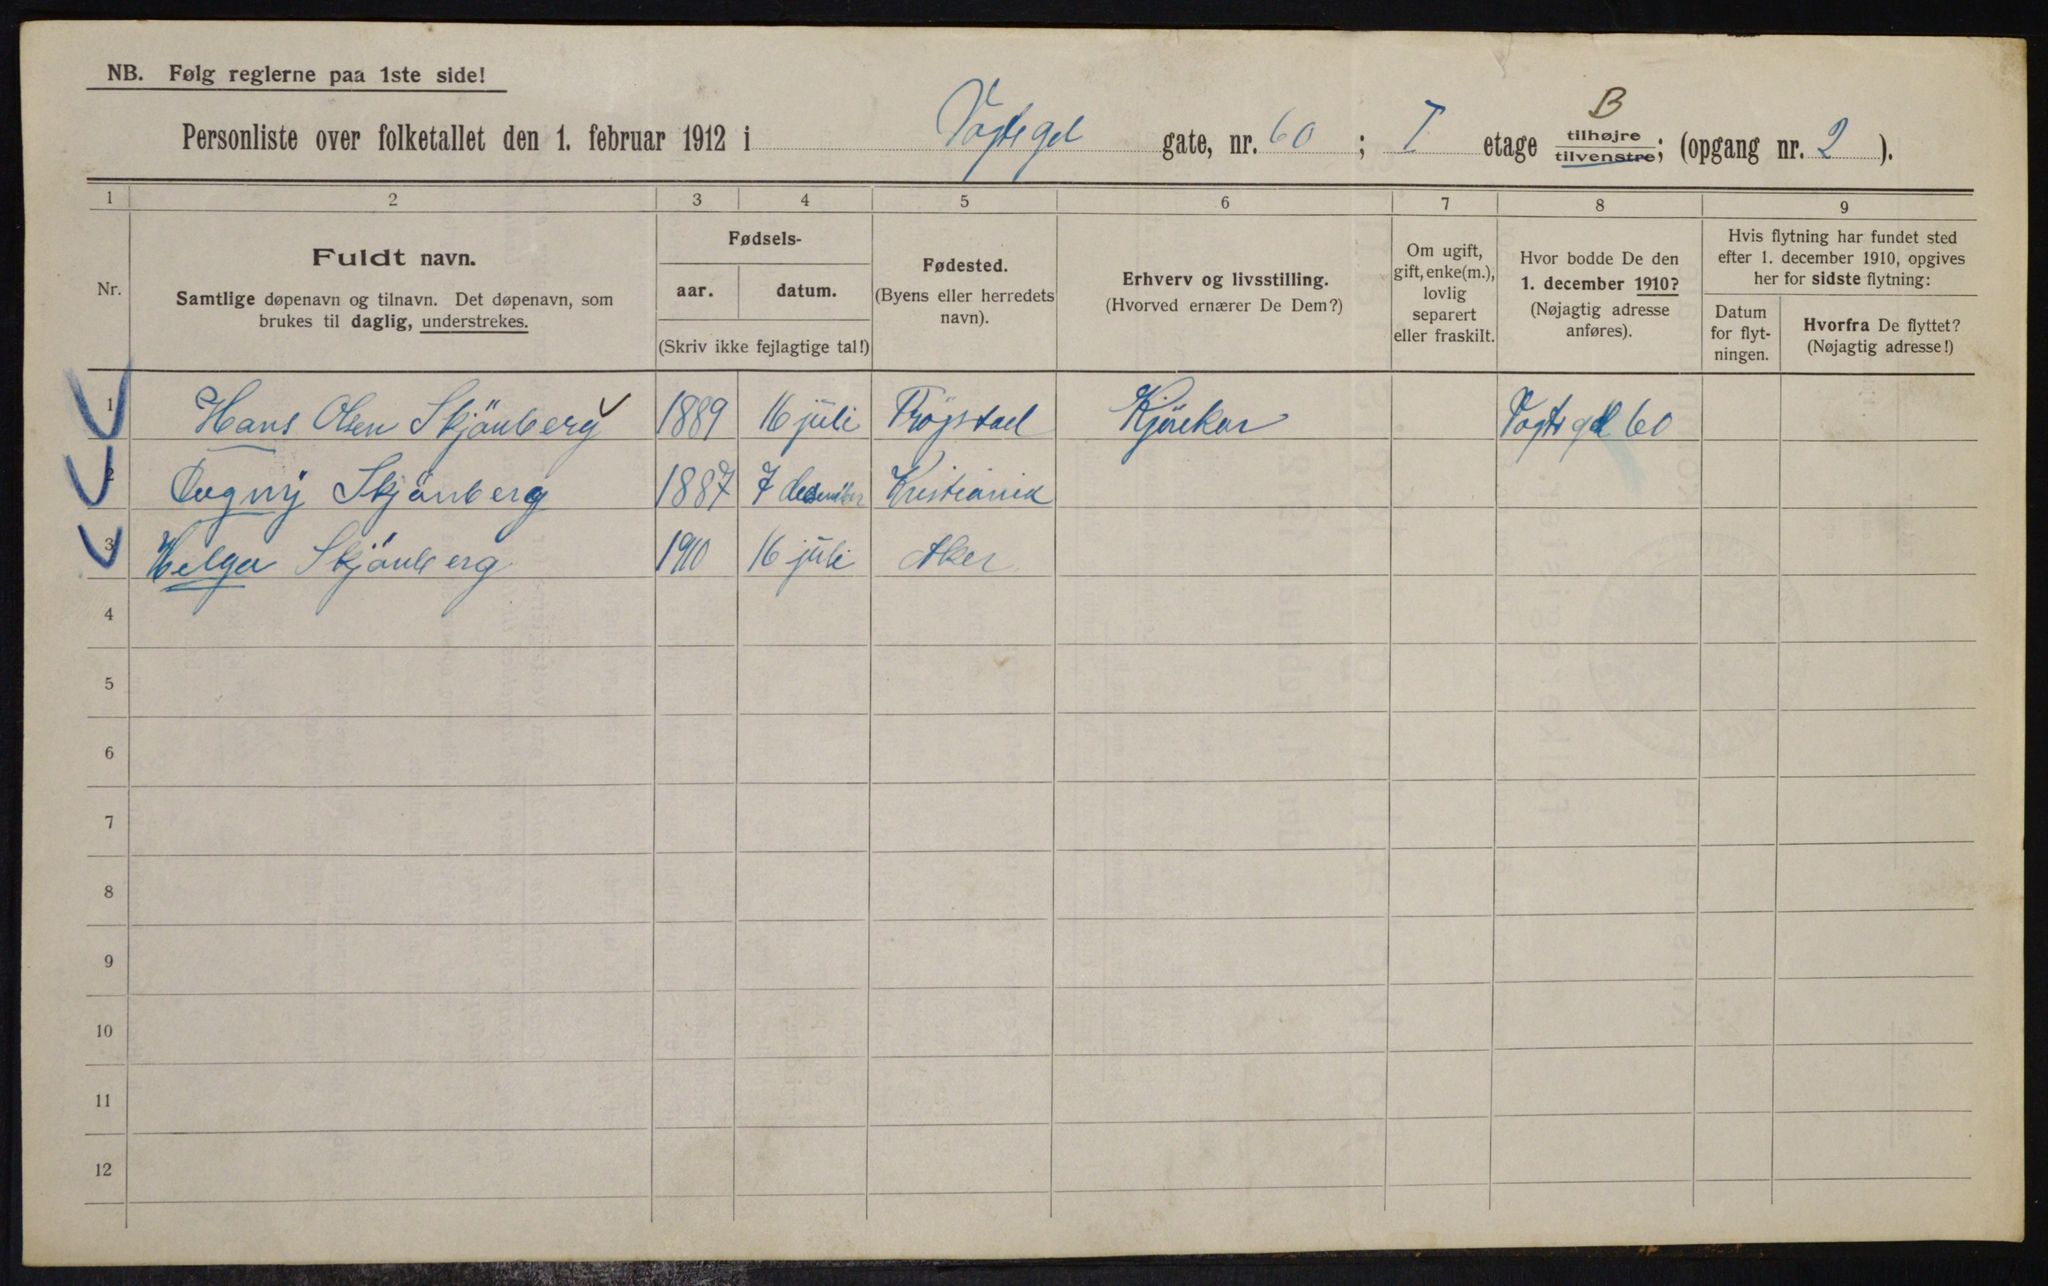 NB. Følg reglerne paa 1ste side!
B
Personliste over folketallet den 1. februar 1912 i Vogtsgd gate, nr. 60 ; I etage tilhøjre tilvenstre; (opgang nr. 2 ).
1 2 3 4 5 6 7 8 9
Nr.
Fuldt navn.
Samtlige døpenavn og tilnavn. Det døpenavn, som
brukes til daglig, understrekes.
Fødsels-
aar. datum.
(Skriv ikke fejlagtige tal!)
Fødested.
(Byens eller herredets
navn).
Erhverv og livsstilling.
(Hvorved ernærer De Dem?)
Om ugift,
gift, enke(m.),
lovlig
separert
eller fraskilt.
Hvor bodde De den
1. december 1910?
(Nøjagtig adresse
anføres).
Hvis flytning har fundet sted
efter 1. december 1910, opgives
her for sidste flytning:
Datum
for flyt-
ningen.
Hvorfra De flyttet?
(Nøjagtig adresse!)
1 Hans Olsen Skjönberg 1889 16 juli Trögstad Kjörekar Vogtsgd 60
2 Dagny Skjönberg 1887 7 desember Kristiania
3 Helga Skjönberg 1910 16 juli Aker
4
5
6
7
8
9
10
11
12